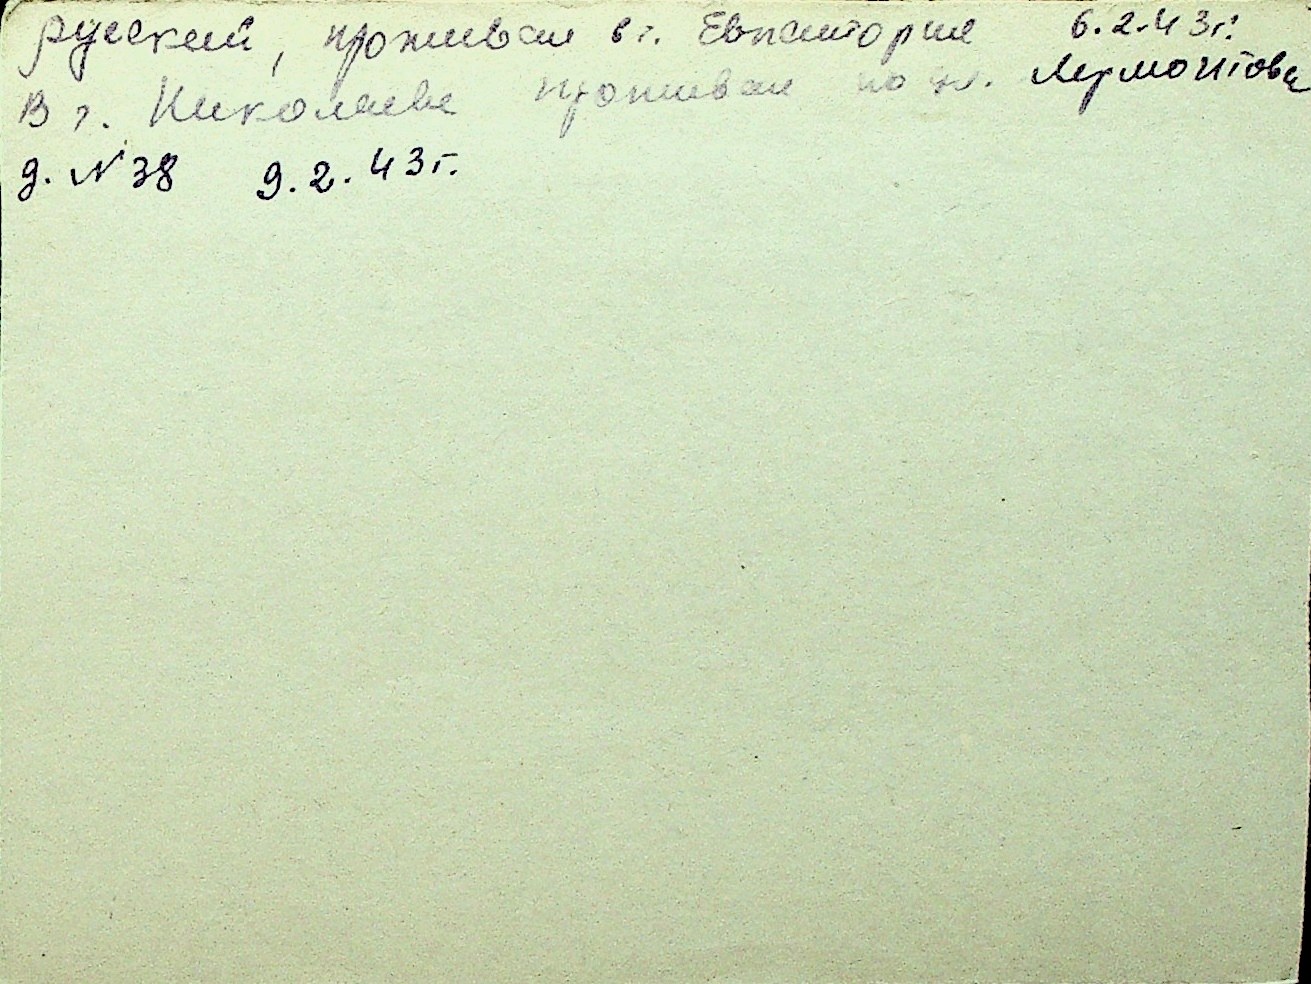 русский, проживал в г. Евпатории 6.2.43г.
В г. Николаеве проживал по ул. Лермонтова
д. № 38 9.2.43г.